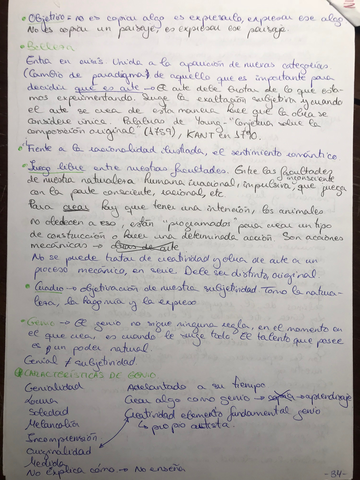 • Objetivo = no es copiar algo es expresarlo, expresar ese algo
No es copiar un paisaje, es expresar ese paisaje.
• Belleza
Entra en crisis. Unida a la aparición de nuevas categorías
(cambio de paradigma) de aquello que es importante para
decidir que es arte → El arte debe brotar de lo que esta-
mos experimentando. Surge la exaltación subjetiva y cuando
el arte se crea de esta manera hace que la obra se
considere única. Palabras de Young - "Conjetura sobre la
composición original" (1759), KANT en 1790.
Frente a la racionalidad ilustrada, el sentimiento romántico
Juego libre entre nuestras facultades. Entre las facultades
de nuestra naturaleza humana irracional, impulsiva, inconsciente que juega
con la parte consciente, racional, etc
Para crear hay que tener una intención, los animales
no obedecen a eso, están "programados" para crear un tipo
de construcción o hacer una determinada acción. Son acciones
mecánicas → obras de arte
No se puede tratar de creatividad y obra de arte a un
proceso mecánico, en serie. Debe ser distinto, original.
• Cuadro → objetivación de nuestra subjetividad. Tomo la natura-
leza, la hago mía y la expreso
• Genio → El genio no sigue ninguna regla, en el momento en
el que crea, es cuando le surge todo. El talento que posee
es un poder natural.
Genial ≠ subjetividad
CARACTERÍSTICAS DE GENIO
Genialidad Adelantado a su tiempo
Locura Crear algo como genio → aprendizaje
Soledad Creatividad elemento fundamental genio
Melancolía → propio artista.
Incomprensión
Originalidad
Medida
No explica cómo → No enseña
-84-